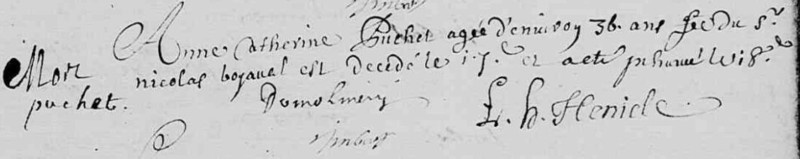 Anne Catherine Puchet agée d'environ 36. ans fe du Sr.
Mort nicolas bojanel est decedé le 17.e et a eté inhumé le 18.e
puchet.
L. h. Henicle.